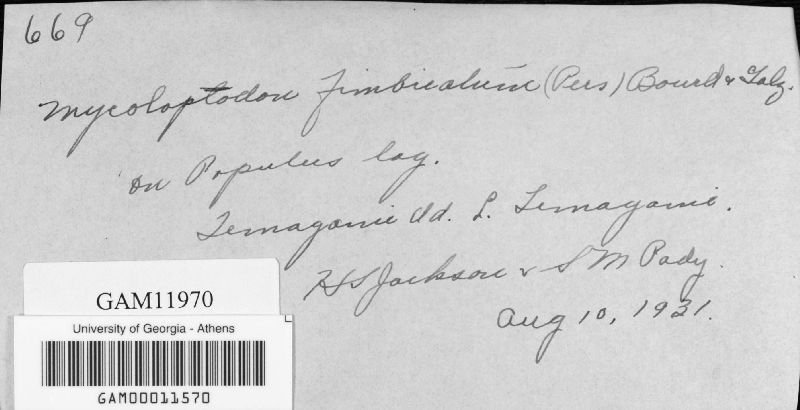 669
Mycoleptodon fimbriatum (Pers) Bourd & Galz.
on Populus log.
Temagamie Isd. L. Temagamie.
HS Jackson & S M Pady.
Aug 10, 1931.
GAM11970
University of Georgia - Athens
GAM00011570